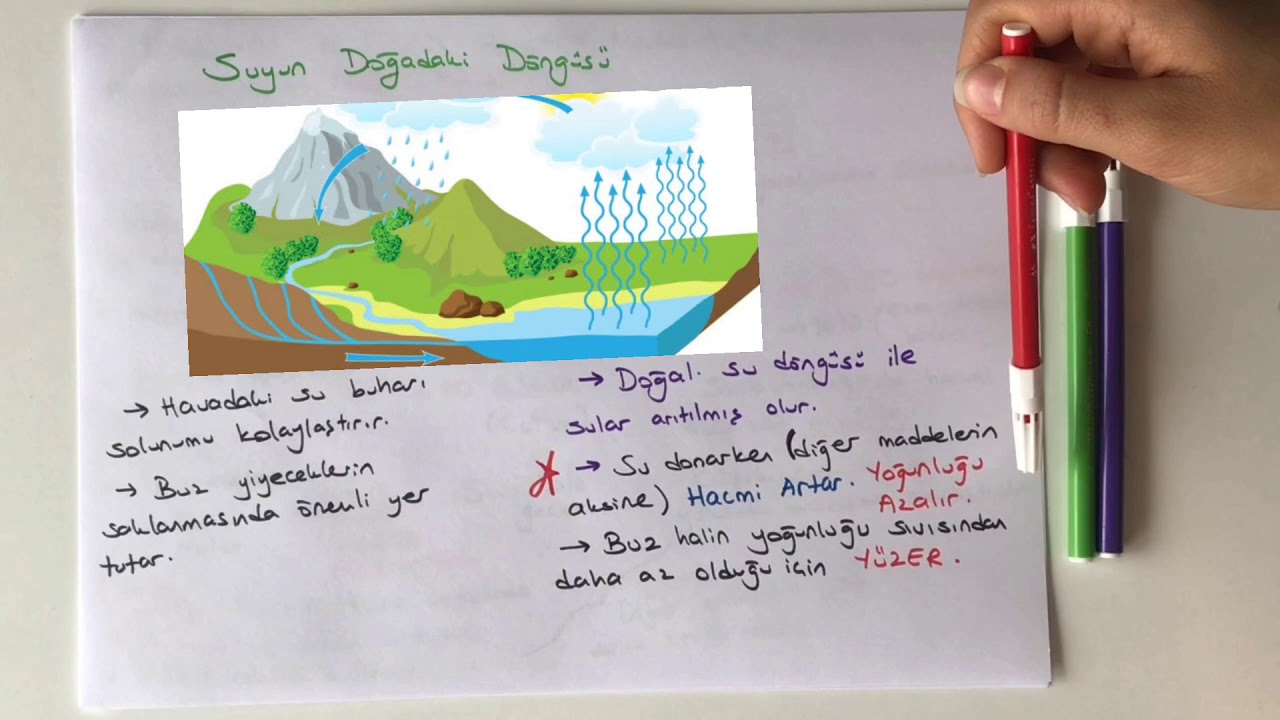 Suyun Doğadaki Döngüsü
→ Havadaki su buharı
solunumu kolaylaştırır.
→ Buz yiyeceklerin
saklanmasında önemli yer
tutar.
→ Doğal su döngüsü ile
sular arıtılmış olur.
→ Su donarken (diğer maddelerin
aksine) Hacmi Artar. Yoğunluğu
Azalır.
→ Buz halin yoğunluğu sıvısından
daha az olduğu için YÜZER.